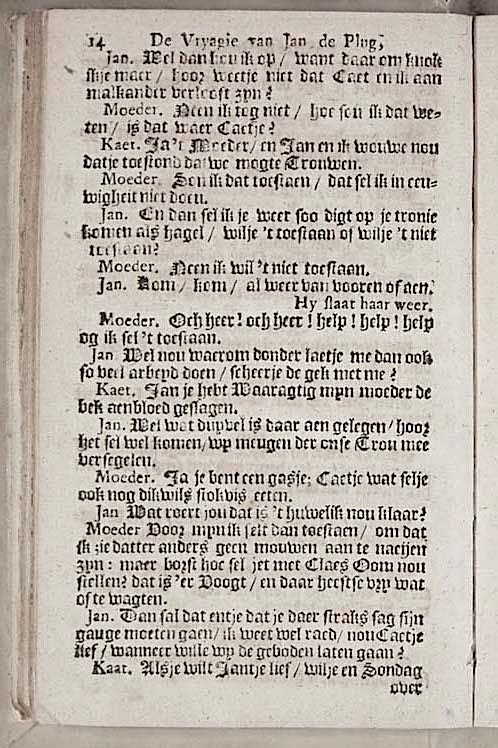 14 De Vryagie van Jan de Plug,
Jan. Wel dan hou ik op / want daar om kuok
ikje maer / hoor weetje niet dat Caet en ik aan
malkander verlooft zyn?
Moeder. Neen ik tog niet / hoe sou ik dat we-
ten / is dat waer Caetje?
Kaet. Ja't Moeder / en Jan en ik wouwe nou
datje toestond dat we mogte Trouwen.
Moeder. Sou ik dat toestaen / dat sel ik in eeu-
wigheit niet doen.
Jan. En dan sel ik je weer soo digt op je tronie
komen als hagel / wilje 't toestaen of wilje 't niet
toestaan?
Moeder. Neen ik wil 't niet toestaan.
Jan. Kom / kom / al weer van vooren of aen.
Hy slaat haar weer.
Moeder. Och heer! och heer! help! help! help
og ik sel 't toestaan.
Jan Wel nou waerom donder laetje me dan ook
so veel arbeyd doen / scheerje de gek met me?
Kaet. Jan je hebt Waaragtig myn moeder de
bek aenbloed geslagen.
Jan. Wel wat duyvel is daar aen gelegen / hoor
het sel wel komen, wy meugen der onse Trou mee
versegelen.
Moeder. Ja je bent een gasje; Caetje wat selje
ook nog dikwils stokvis eeten.
Jan Wat roert jou dat is 't huwelik nou klaar?
Moeder Voor myn ik selt dan toestaen / om dat
ik zie datter anders geen mouwen aan te naeijen
zyn: maer borst hoe sel jet met Claes Oom nou
stellen? dat is 'er Voogt / en daar heestse vry wat
of te wagten.
Jan. Dan sal dat entje dat je daer straks sag sijn
gauge moeten gaen / ik weet wel raed / nou Caetje
lief / wanneer wille wy de geboden laten gaan?
Kaat. Alsje wilt Jantje lief / wilje en Sondag
over